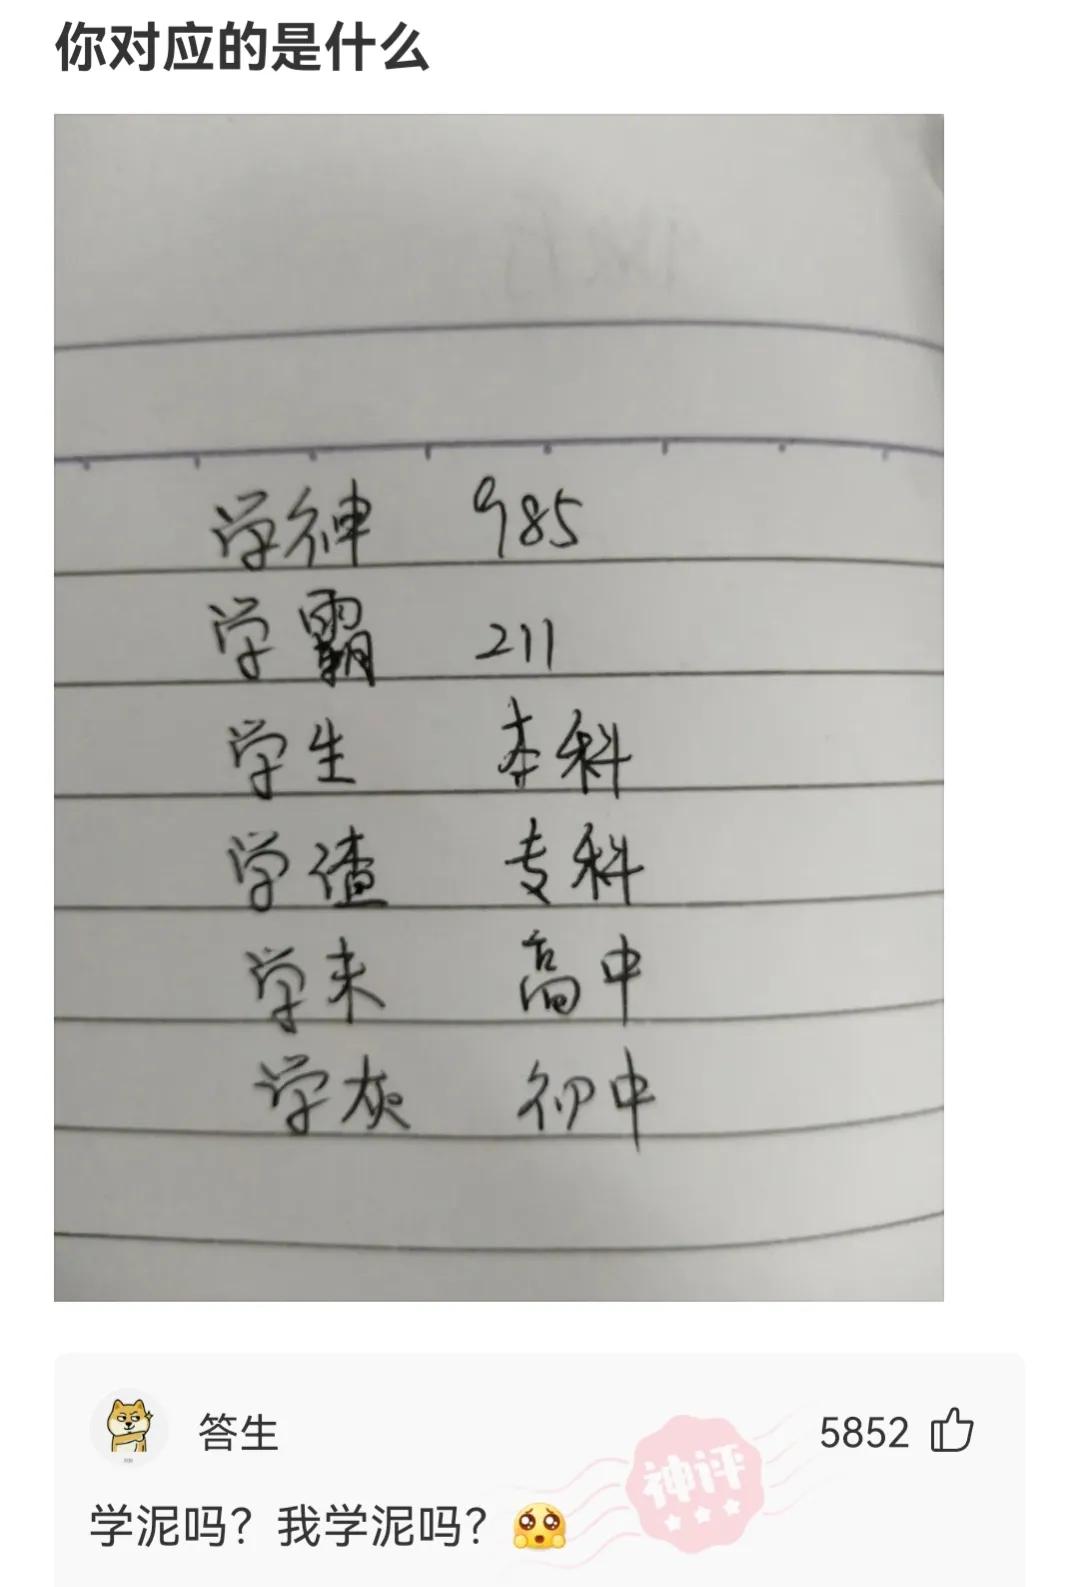 你对应的是什么
学神 985
学霸 211
学生 本科
学渣 专科
学末 高中
学灰 初中
答生
5852
神评
学泥吗？我学泥吗？